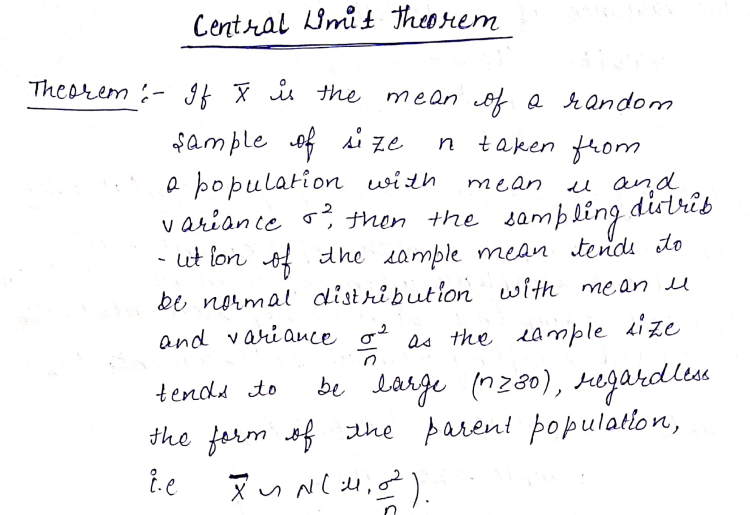 Central Limit Theorem
Theorem :- If x̄ is the mean of a random
sample of size n taken from
a population with mean μ and
variance σ², then the sampling distrib
- ution of the sample mean tends to
be normal distribution with mean μ
and variance σ²/n as the sample size
tends to be large (n≥30), regardless
the form of the parent population,
i.e x̄ ~ N(μ, σ²/n).